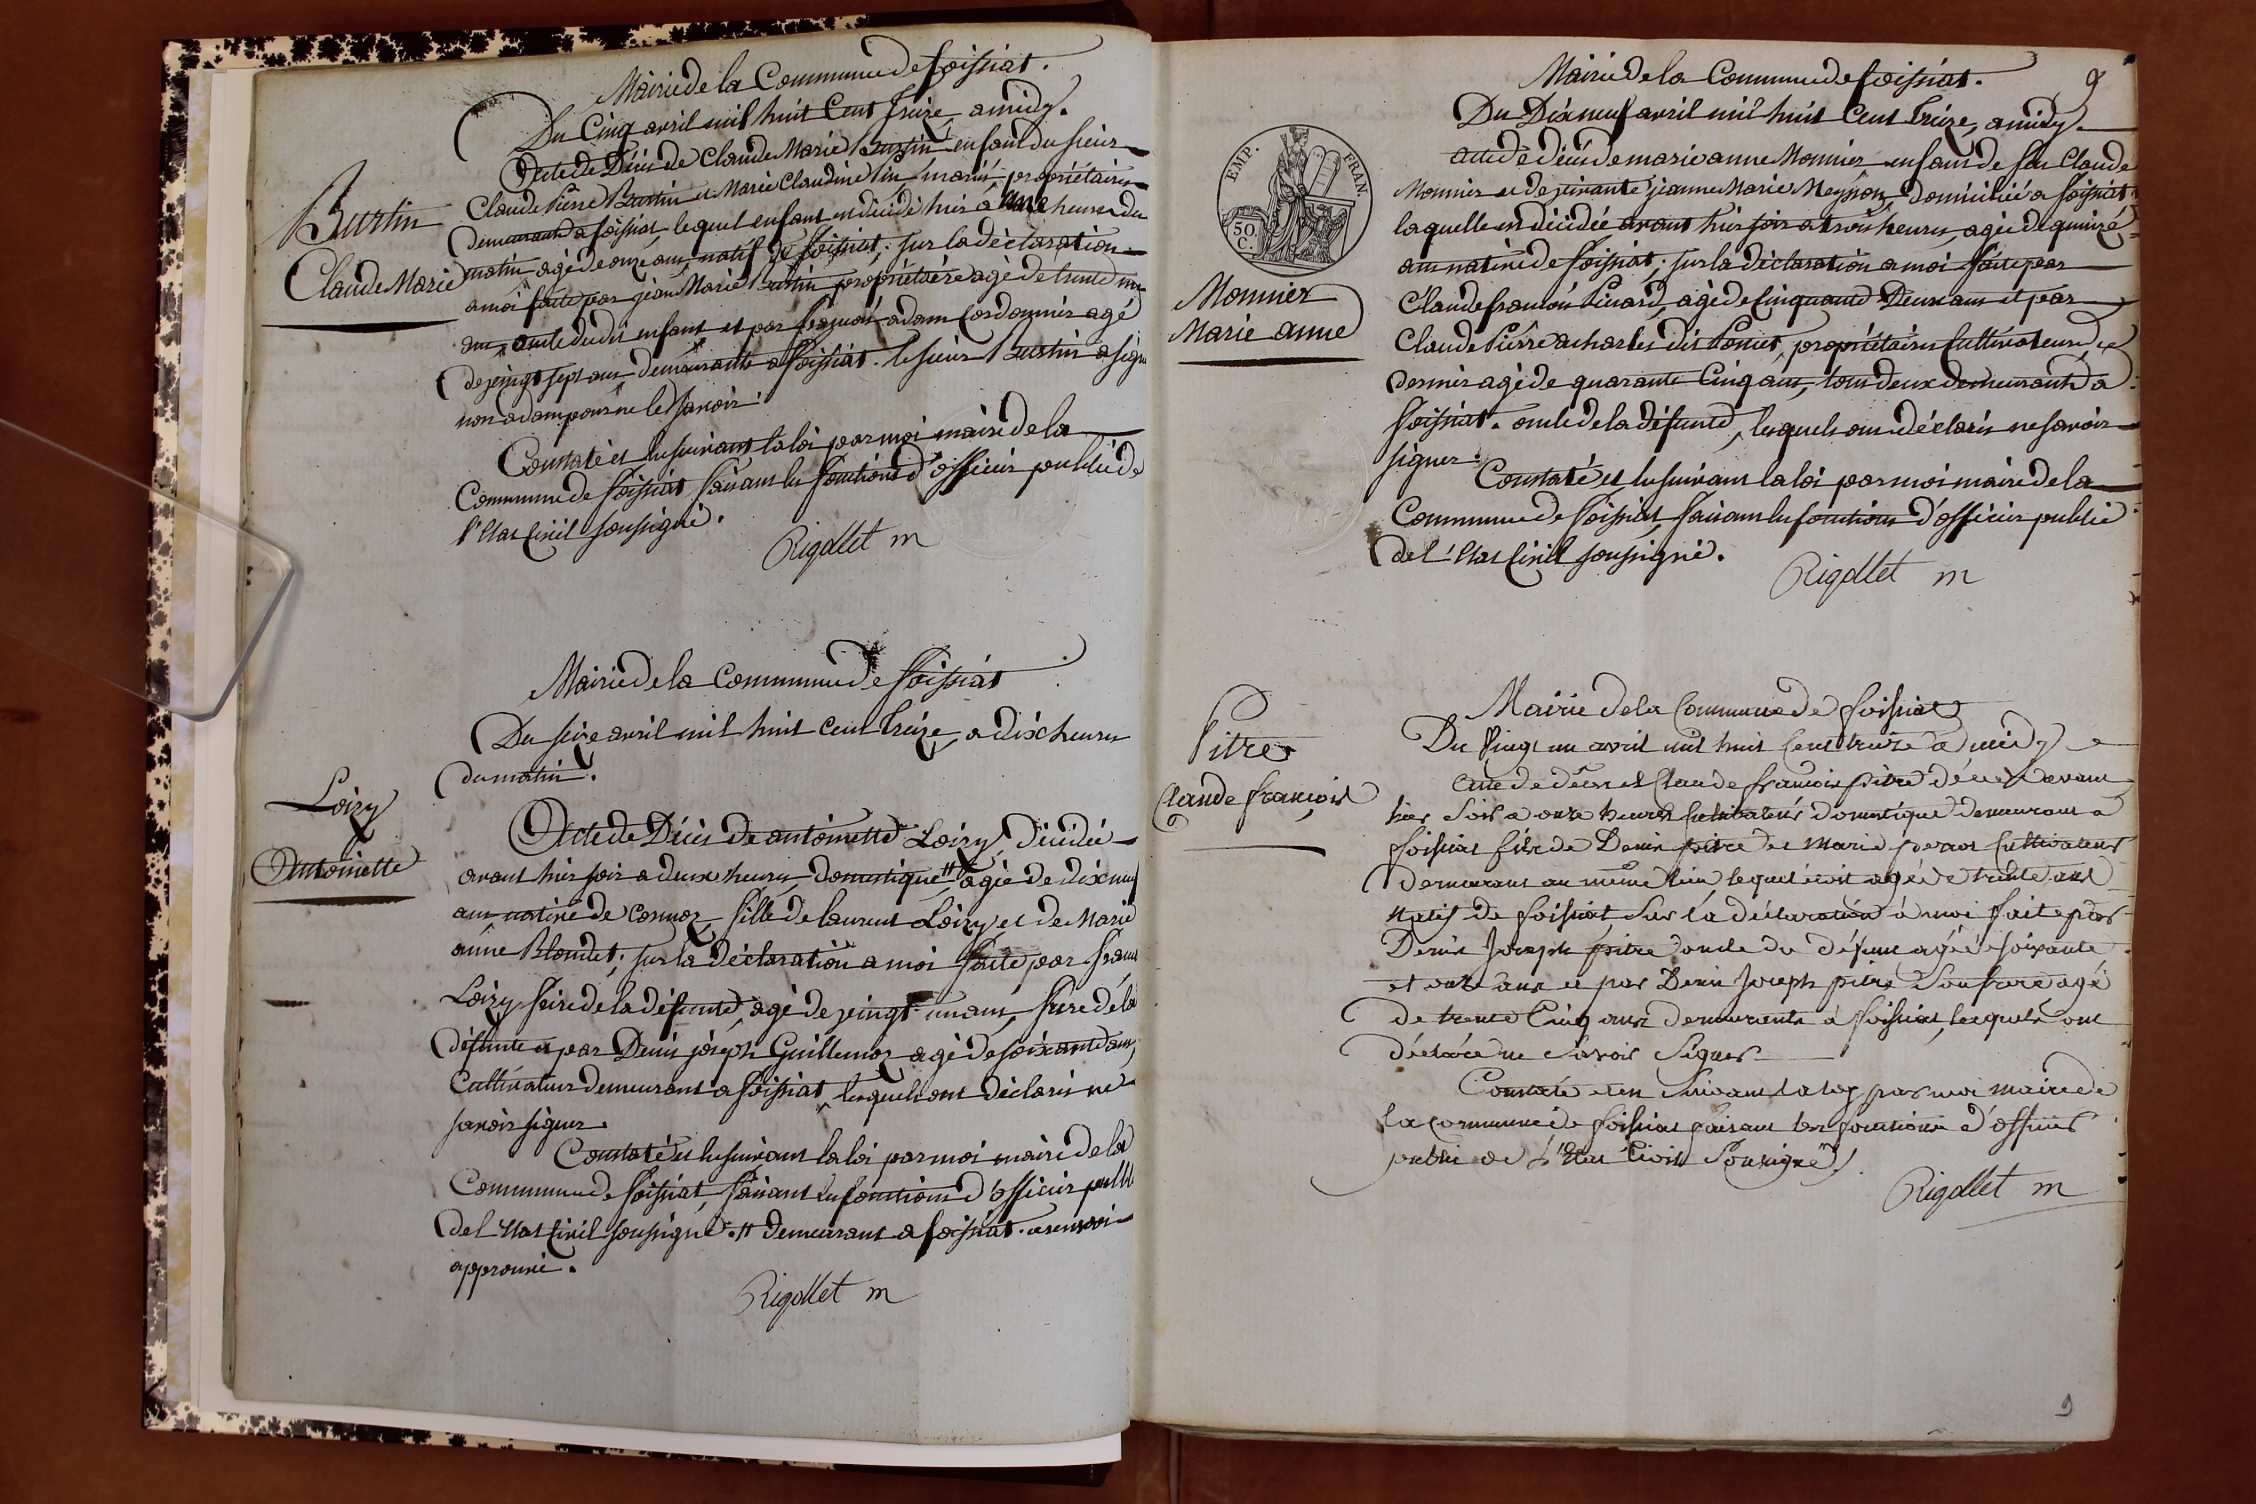 Mairie de la Commune de foissiat.
Du Cinq avril mil huit Cent Treize, a midy.
Acte de Décès de Claude Marie Burtin enfant du sieur
Claude Pierre Burtin et Marie Claudine Vin mariés propriétaires
demeurant a foissiat, lequel enfant est décédé hier à onze heures du
matin agé de onze ans, natif de foissiat; sur la déclaration
a moi faite par jean Marie Burtin propriétaire agé de trente un
ans, oncle du dit enfant et par françois adam Cordonnier agé
de vingt sept ans, demeurants a foissiat. le sieur Burtin a signé
non adam pour ne le savoir.
Constaté et lu suivant la loi par moi maire de la
Commune de foissiat faisant les fonctions d'officier public de
l'Etat Civil soussigné.
Rigollet m
Burtin
Claude Marie
Mairie de la Commune de foissiat
Du seize avril mil huit cent treize, a dix heures
du matin.
Acte de Décès de antoinette Loizy, décédée
avant hier soir a deux heures, domestique, # agée de dix neuf
ans native de Cormoz, fille de laurent Loizy et de Marie
anne Blondet; sur la déclaration a moi faite par
Loizy frère de la défunte, agé de vingt un ans, frère de la
défunte et par Denis joseph Guillemoz agé de soixante ans,
Cultivateurs demeurant a foissiat, lesquels ont déclarés ne
savoir signer.
Constaté et lu suivant la loi par moi maire de la
Commune de foissiat, faisant les fonctions d'officier public
de l'Etat Civil soussigné. # demeurant a foissiat. a renvoi
approuvé.
Rigollet m
Loizy
Antoinette
9
Mairie de la Commune de foissiat.
Du Dix neuf avril mil huit Cent treize, a midy.
acte de décès de marie anne Monnier enfant de feu Claude
Monnier et de vivante jeanne Marie Meynon, domiciliée a foissiat
laquelle est décédée avant hier soir a trois heures, agée de quinze
ans native de foissiat; sur la déclaration a moi faite par
Claude françois Penard, agé de Cinquante Deux ans et par
Claude Pierre acharles dit Ponier, propriétaires Cultivateurs, ce
dernier agé de quarante Cinq ans, tous deux demeurants a
foissiat. oncle de la défunte, lesquels ont déclarés ne savoir
signer.
Constaté et lu suivant la loi par moi maire de la
Commune de foissiat, faisant les fonctions d'officier public
de l'Etat Civil soussigné.
Rigollet m
EMP. FRAN.
50.
C.
Monnier
Marie anne
Mairie de la Commune de foissiat
Du Vingt un avril mil huit Cent treize a midy
acte de décès de Claude françois pitre décédé avant
hier soir a onze heures Cultivateur domestique demeurant a
foissiat fils de Denis pitre et de marie Cultivateurs
demeurant au même lieu, lequel étoit agé de trente ans
natif de foissiat, Sur la déclaration à moi faite par
Denis Joseph pitre oncle du défunt agé de soixante
et onze ans et par Denis Joseph pitre Son frere agé
de trente Cinq ans demeurants à foissiat, lesquels ont
déclaré ne Savoir Signer
Constaté et lu Suivant la loy par moi maire de
la commune de foissiat faisant les fonctions d'officier
public de l'Etat Civil Soussigné
Rigollet m
Pitre
Claude françois
9